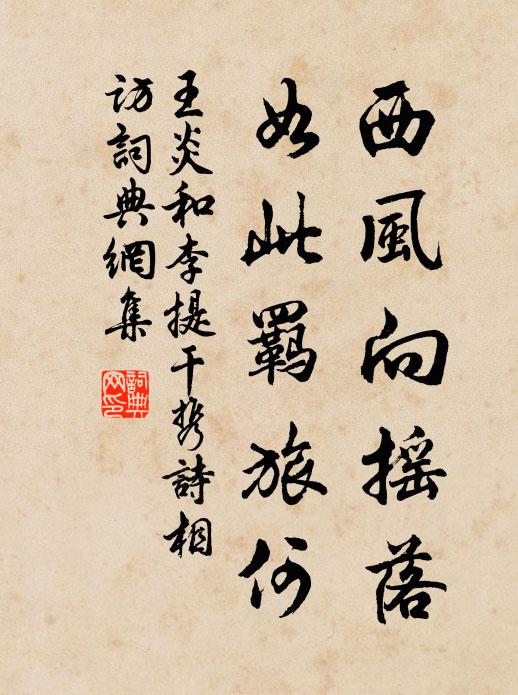 西風向摇落
如此羈旅何
王炎和李提干携詩相
訪詞典網集
詞典
网印